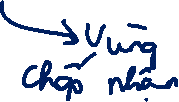 Vùng
chấp nhận